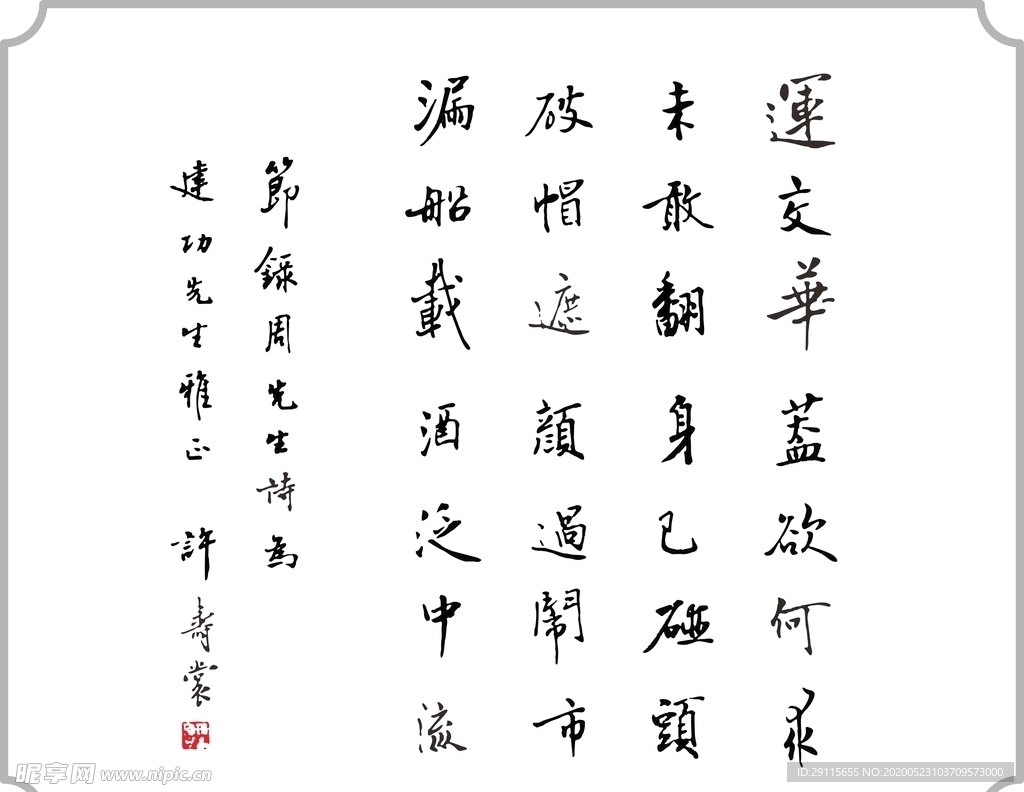 運交華蓋欲何求
未敢翻身已碰頭
破帽遮顏過鬧市
漏船載酒泛中流
節錄周先生詩為
建功先生雅正 許壽裳
昵享网 www.nipic.cn
ID:29115655 NO:20200523103709573000